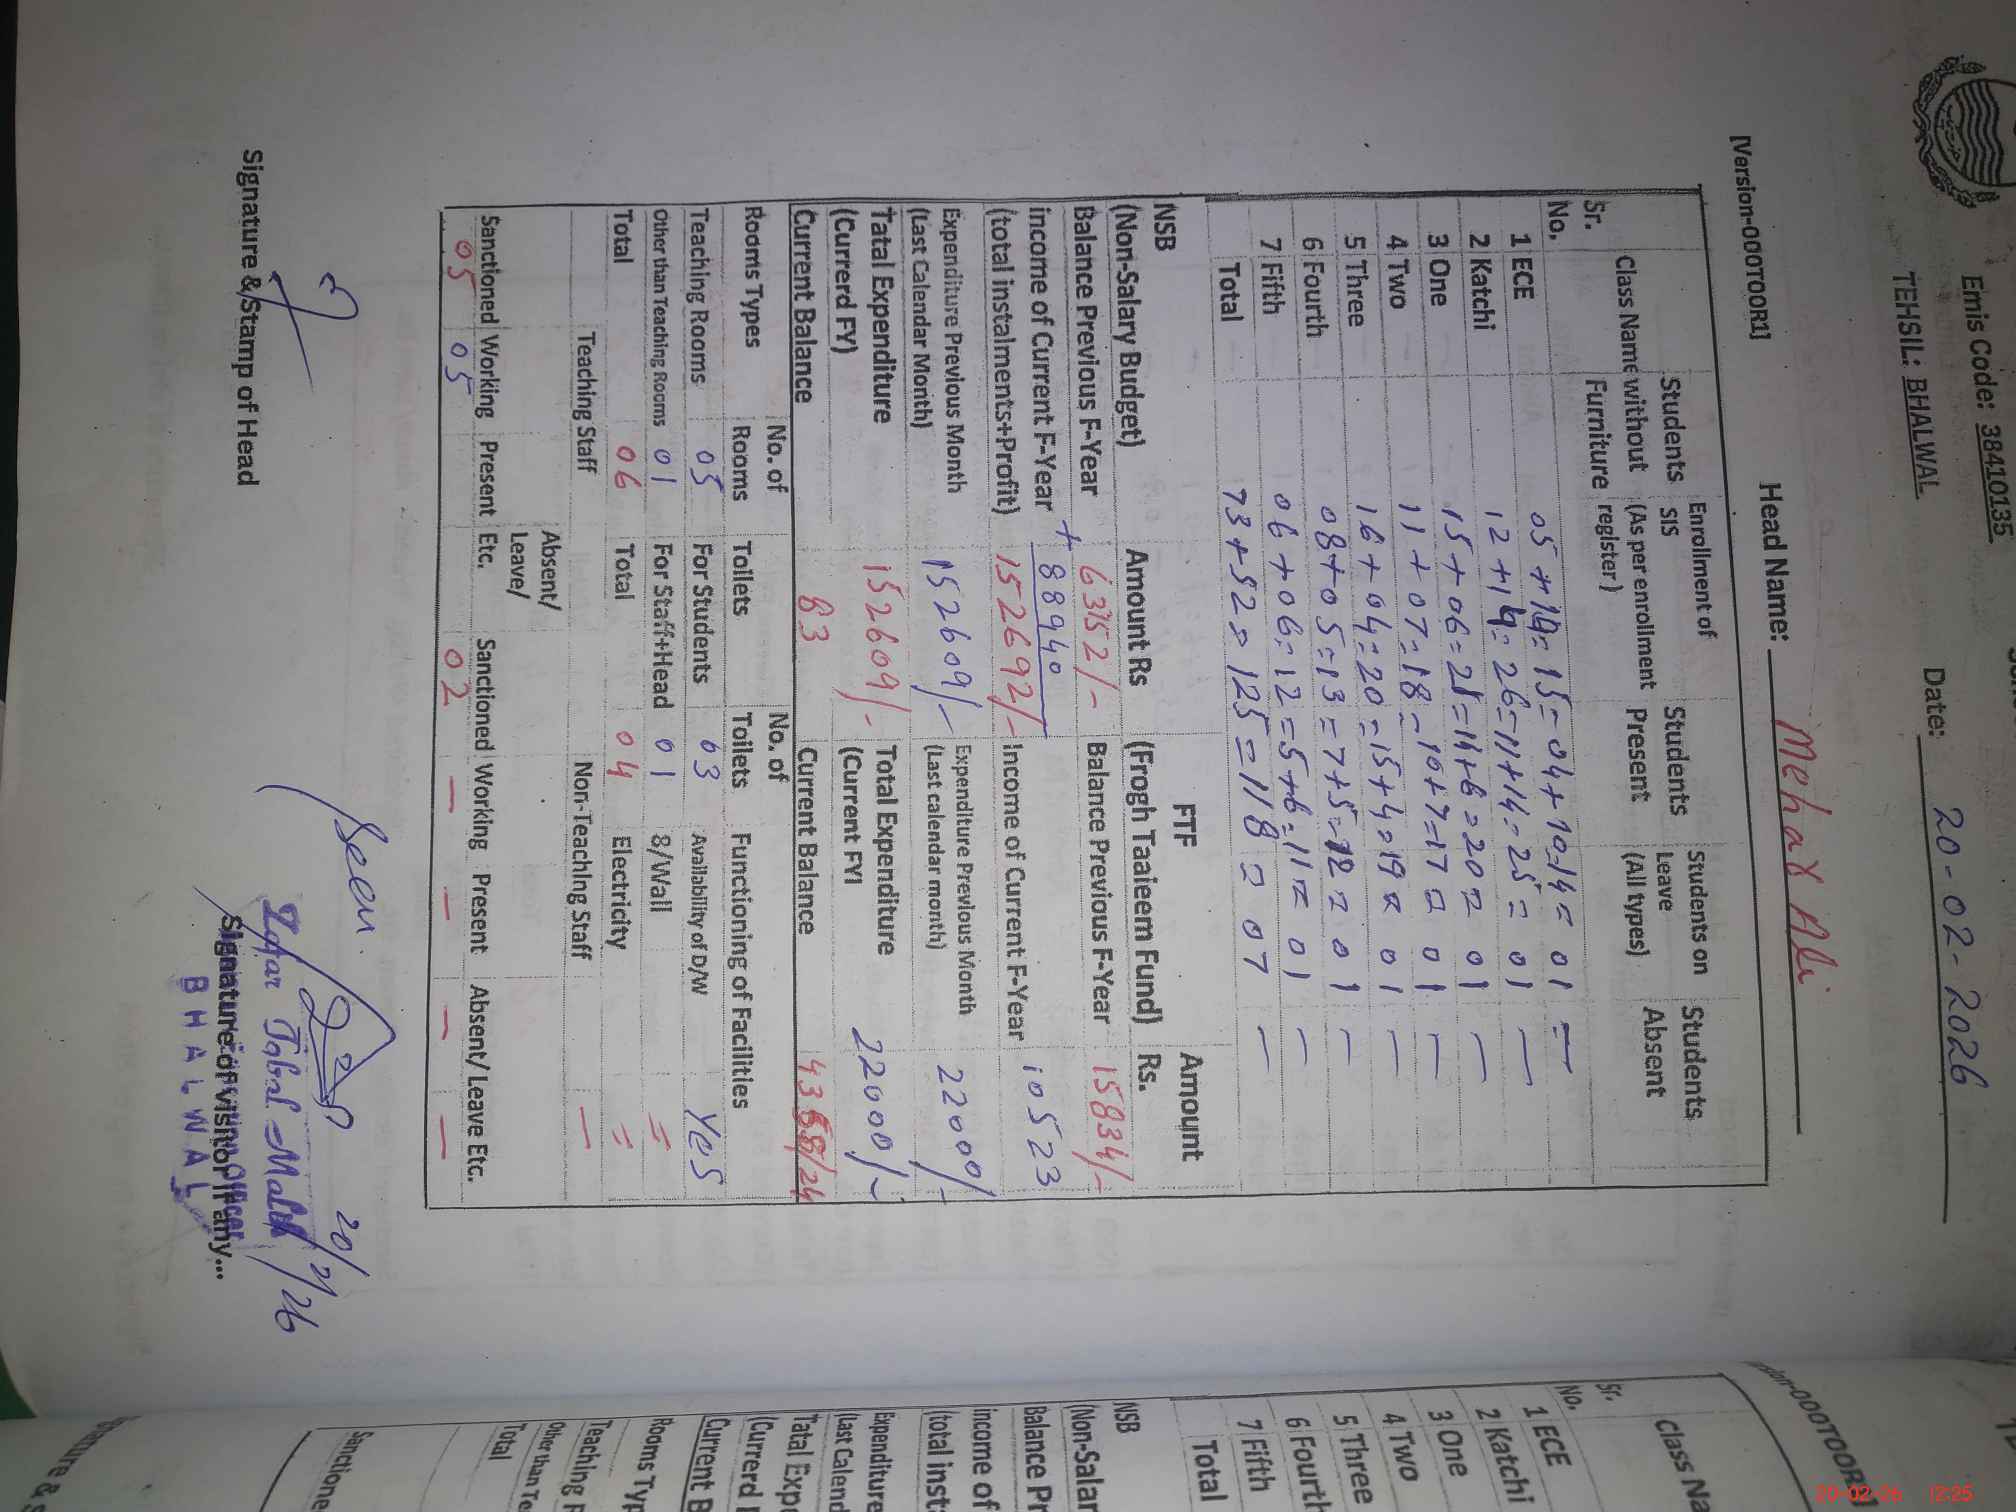 Emis Code: 38410135
TEHSIL: BHALWAL
Date: 20-02-2026
[Version-000TOOR1]
Head Name: Mehar Ali
Sr. No. Class Name Students without Furniture Enrollment of SIS (As per enrollment register) Students Present Students on Leave (All types) Students Absent
1 ECE 05+10=15=04+10=14= 01 —
2 Katchi 12+14=26=11+14=25= 01 —
3 One 15+06=21=14+6=20= 01 —
4 Two 11+07=18=10+7=17= 01 —
5 Three 16+04=20=15+4=19= 01 —
6 Fourth 08+05=13=7+5=12= 01 —
7 Fifth 06+06=12=5+6=11= 01 —
Total 73+52=125=118= 07 —
NSB (Non-Salary Budget) Amount Rs FTF (Frogh Taaieem Fund) Amount Rs.
Balance Previous F-Year 63752/- Balance Previous F-Year 15834/-
income of Current F-Year (total instalments+Profit) +88940 152692/- Income of Current F-Year 10523
Expenditure Previous Month (Last Calendar Month) 152609/- Expenditure Previous Month (Last calendar month) 22000/-
Tatal Expenditure (Currerd FY) 152609/- Total Expenditure (Current FYI 22000/-
Current Balance 83 Current Balance
Rooms Types No. of Rooms Toilets No. of Toilets Functioning of Facilities
Teaching Rooms 05 For Students 03 Availability of D/W Yes
Other than Teaching Rooms 01 For Staff+Head 01 8/Wall =
Total 06 Total 04 Electricity =
Teaching Staff Non-Teaching Staff —
Sanctioned Working Present Absent/ Leave/ Etc. Sanctioned Working Present Absent/ Leave Etc.
05 05 02 — — — —
Seen.
20/2/26
Zafar Iqbal Malik
Signature & Stamp of Head
Signature of visitor if any...
BHALWAL
[Version-000TOOR
Sr. No. Class Na
1 ECE
2 Katchi
3 One
4 Two
5 Three
6 Fourth
7 Fifth
Total
NSB
(Non-Salar
Balance Pr
income of
(total inst
Expenditure
(Last Calend
Tatal Expe
(Currerd
Current B
Rooms Typ
Teaching R
Other than Te
Total
Sanctione
20-02-26 12:25